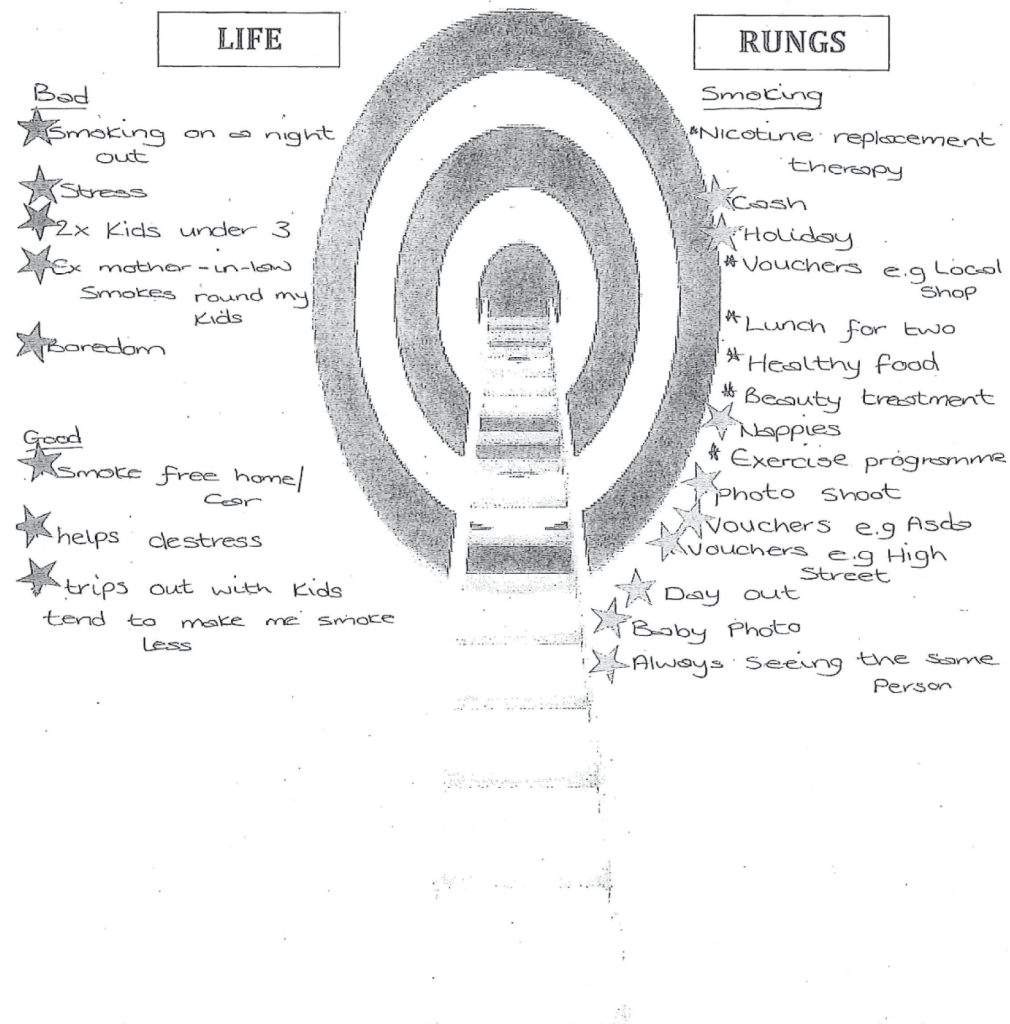 LIFE
Bad
Smoking on a night
out
Stress
2x Kids under 3
Ex mother-in-law
Smokes round my
Kids
Boredom
Good
Smoke free home/
Car
helps destress
trips out with Kids
tend to make me smoke
less
RUNGS
Smoking
*Nicotine replacement
therapy
Cash
Holiday
*Vouchers e.g Local
Shop
*Lunch for two
*Healthy food
*Beauty treatment
Nappies
*Exercise programme
photo shoot
Vouchers e.g Asda
Vouchers e.g High
Street
Day out
Baby Photo
Always seeing the same
Person